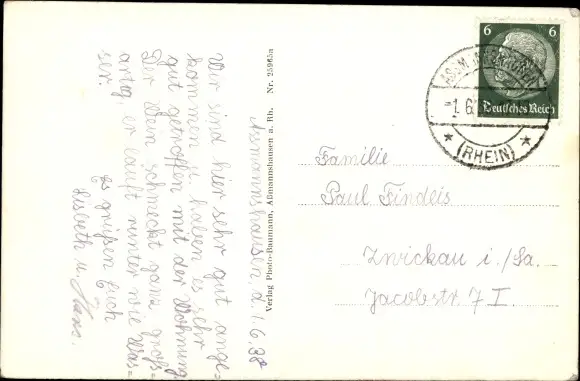 Assmannshausen, d. 1.6.38
Wir sind hier sehr gut ange-
kommen u. haben es sehr
gut getroffen mit der Wohnung
Der Wein schmeckt ganz groß-
artig, er läuft runter wie Was-
ser.
Es grüßen Euch
Lisbeth u. Hans.
Verlag Photo-Baumann, Aßmannshausen a. Rh. Nr. 25965a
6 6
Deutsches Reich
-1.6.
* (RHEIN) *
Familie
Paul Findeis
Zwickau i./Sa.
Jacobstr. 7 I